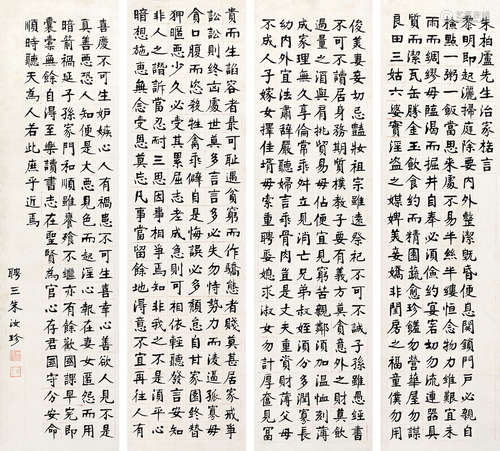 朱柏廬先生治家格言
黎明即起灑掃庭除要內外整潔既昏便息關鎖門戶必親自
檢點一粥一飯當思來處不易半絲半縷恒念物力維艱宜未
雨而綢繆毋臨渴而掘井自奉必須儉約宴客切勿流連器具
質而潔瓦缶勝金玉飲食約而精園蔬愈珍饈勿營華屋勿謀
良田三姑六婆實淫盜之媒婢美妾嬌非閨房之福童僕勿用
俊美妻妾切忌豔妝祖宗雖遠祭祀不可不誠子孫雖愚經書
不可不讀居身務期質樸教子要有義方莫貪意外之財莫飲
過量之酒與肩挑貿易毋佔便宜見窮苦親鄰須加溫恤刻薄
成家理無久享倫常乖舛立見消亡兄弟叔姪須分多潤寡長
幼內外宜法肅辭嚴聽婦言乖骨肉豈是丈夫重資財薄父母
不成人子嫁女擇佳壻毋索重聘娶媳求淑女勿計厚奩見富
貴而生諂容者最可恥遇貧窮而作驕態者賤莫甚居家戒爭
訟訟則終凶處世莫多言言多必失勿恃勢力而凌逼孤寡毋
貪口腹而恣殺牲禽乖僻自是悔誤必多頹惰自甘家園終替
狎暱惡少久必受其累屈志老成急則可相依輕聽發言安知
非人之譖訴當忍耐三思因事相爭焉知非我之不是須平心
暗想施惠無念受恩莫忘凡事當留餘地得意不宜再往人有
喜慶不可生妒嫉心人有禍患不可生喜幸心善欲人見不是
真善惡恐人知便是大惡見色而起淫心報在妻女匿怨而用
暗箭禍延子孫家門和順雖饔飧不繼亦有餘歡國課早完即
囊橐無餘自得至樂讀書志在聖賢為官心存君國守分安命
順時聽天為人若此庶乎近焉
聘三朱汝珍